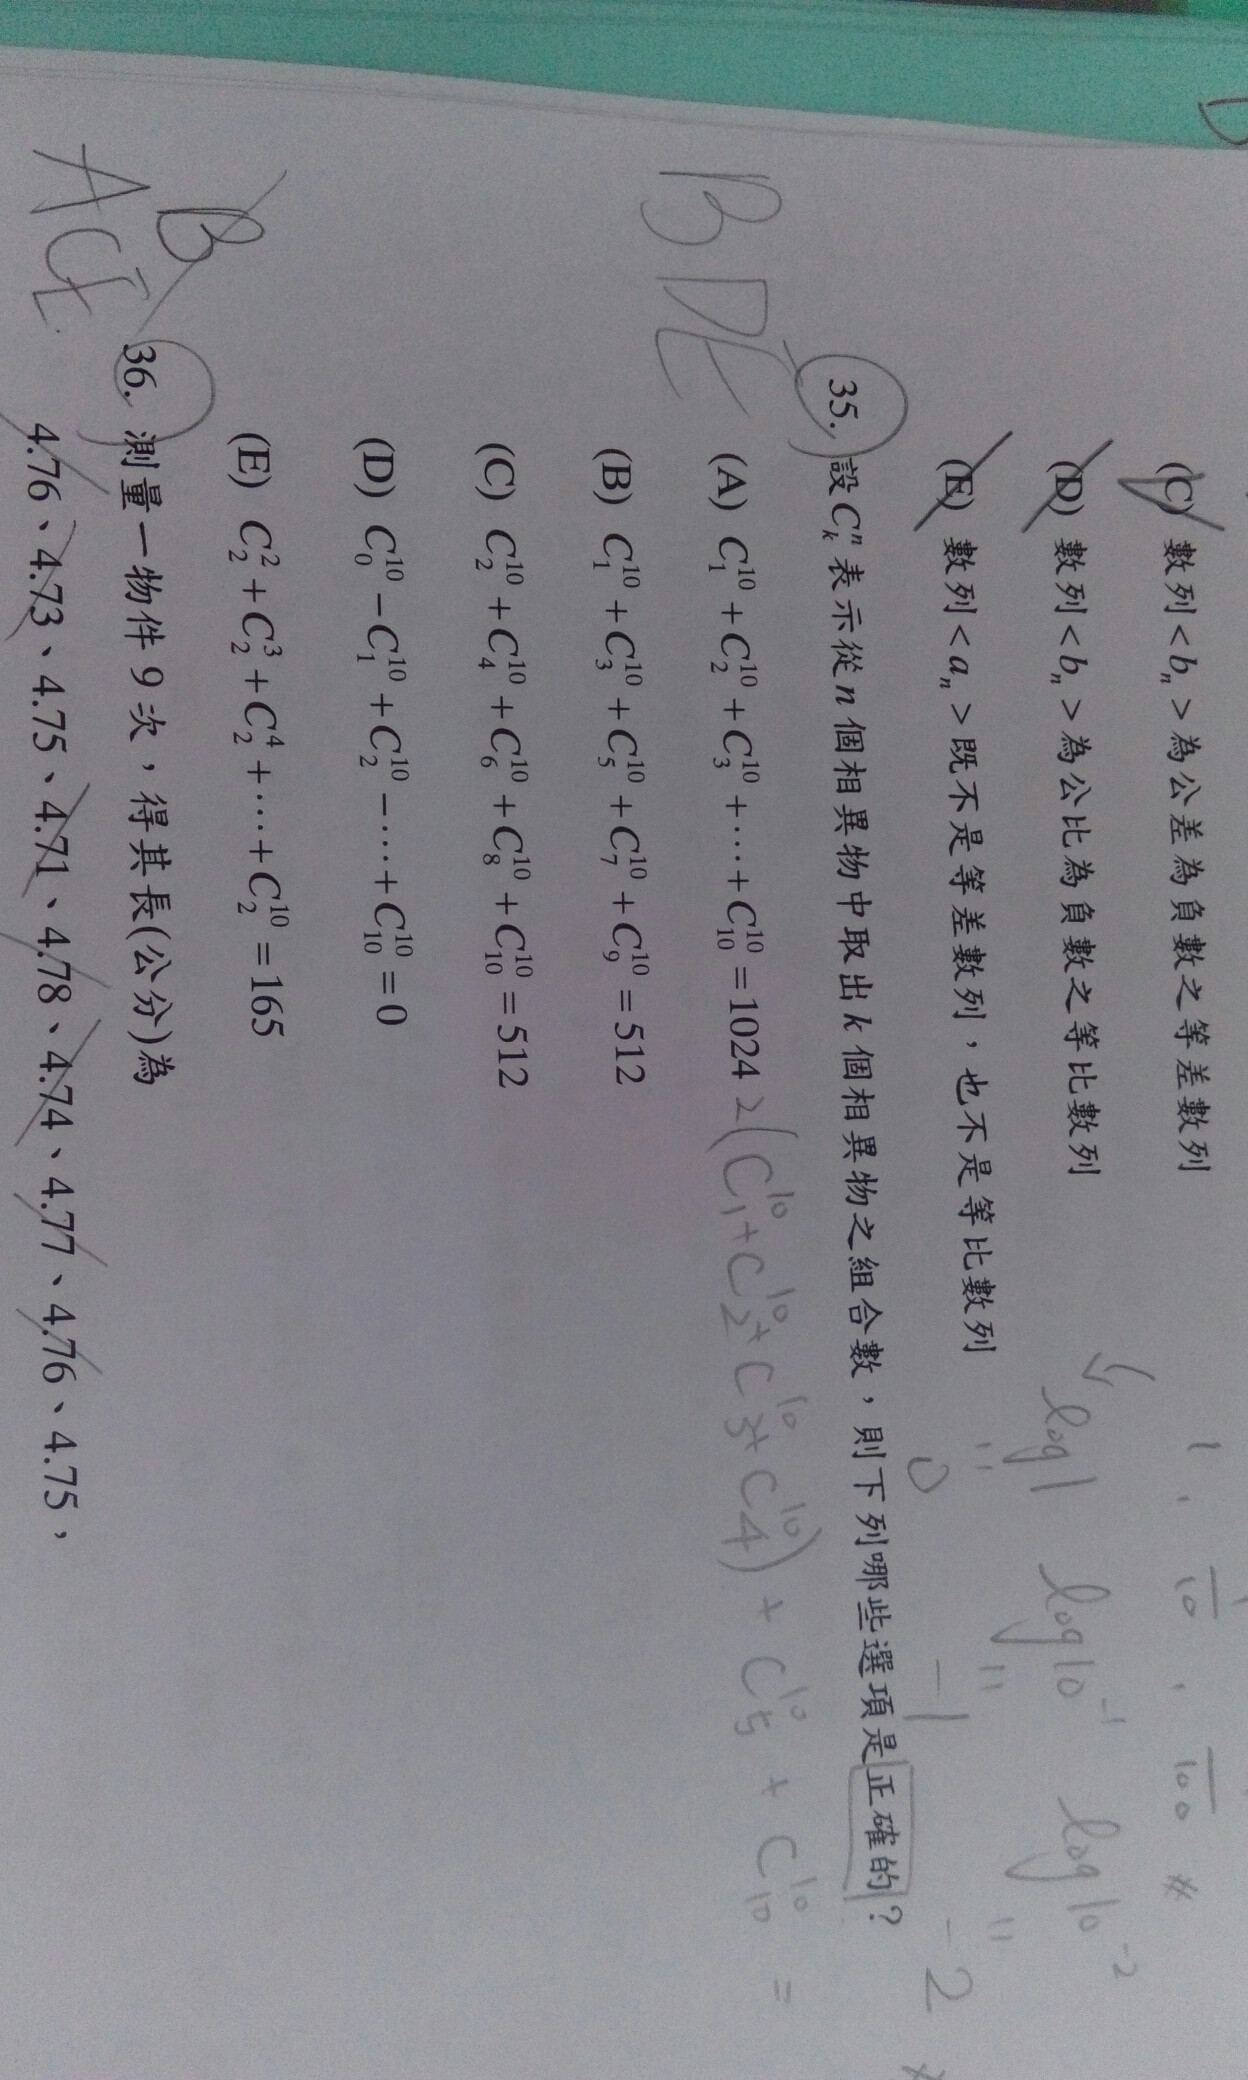 (C) 數列<bₙ>為公差為負數之等差數列
(D) 數列<bₙ>為公比為負數之等比數列
(E) 數列<aₙ>既不是等差數列，也不是等比數列
1, 1/10, 1/100 *
log1 log10⁻¹ log10⁻²
= = =
0 -1 -2 *
BDE
35. 設Cₖⁿ表示從n個相異物中取出k個相異物之組合數，則下列哪些選項是正確的？
(A) C₁¹⁰+C₂¹⁰+C₃¹⁰+⋯+C₁₀¹⁰=1024 2(C₁¹⁰+C₂¹⁰+C₃¹⁰+C₄¹⁰)+C₅¹⁰+C₁₀¹⁰=
(B) C₁¹⁰+C₃¹⁰+C₅¹⁰+C₇¹⁰+C₉¹⁰=512
(C) C₂¹⁰+C₄¹⁰+C₆¹⁰+C₈¹⁰+C₁₀¹⁰=512
(D) C₀¹⁰−C₁¹⁰+C₂¹⁰−⋯+C₁₀¹⁰=0
(E) C₂²+C₂³+C₂⁴+⋯+C₂¹⁰=165
B
ACE
36. 測量一物件9次，得其長(公分)為
4.76、4.73、4.75、4.71、4.78、4.74、4.77、4.76、4.75，